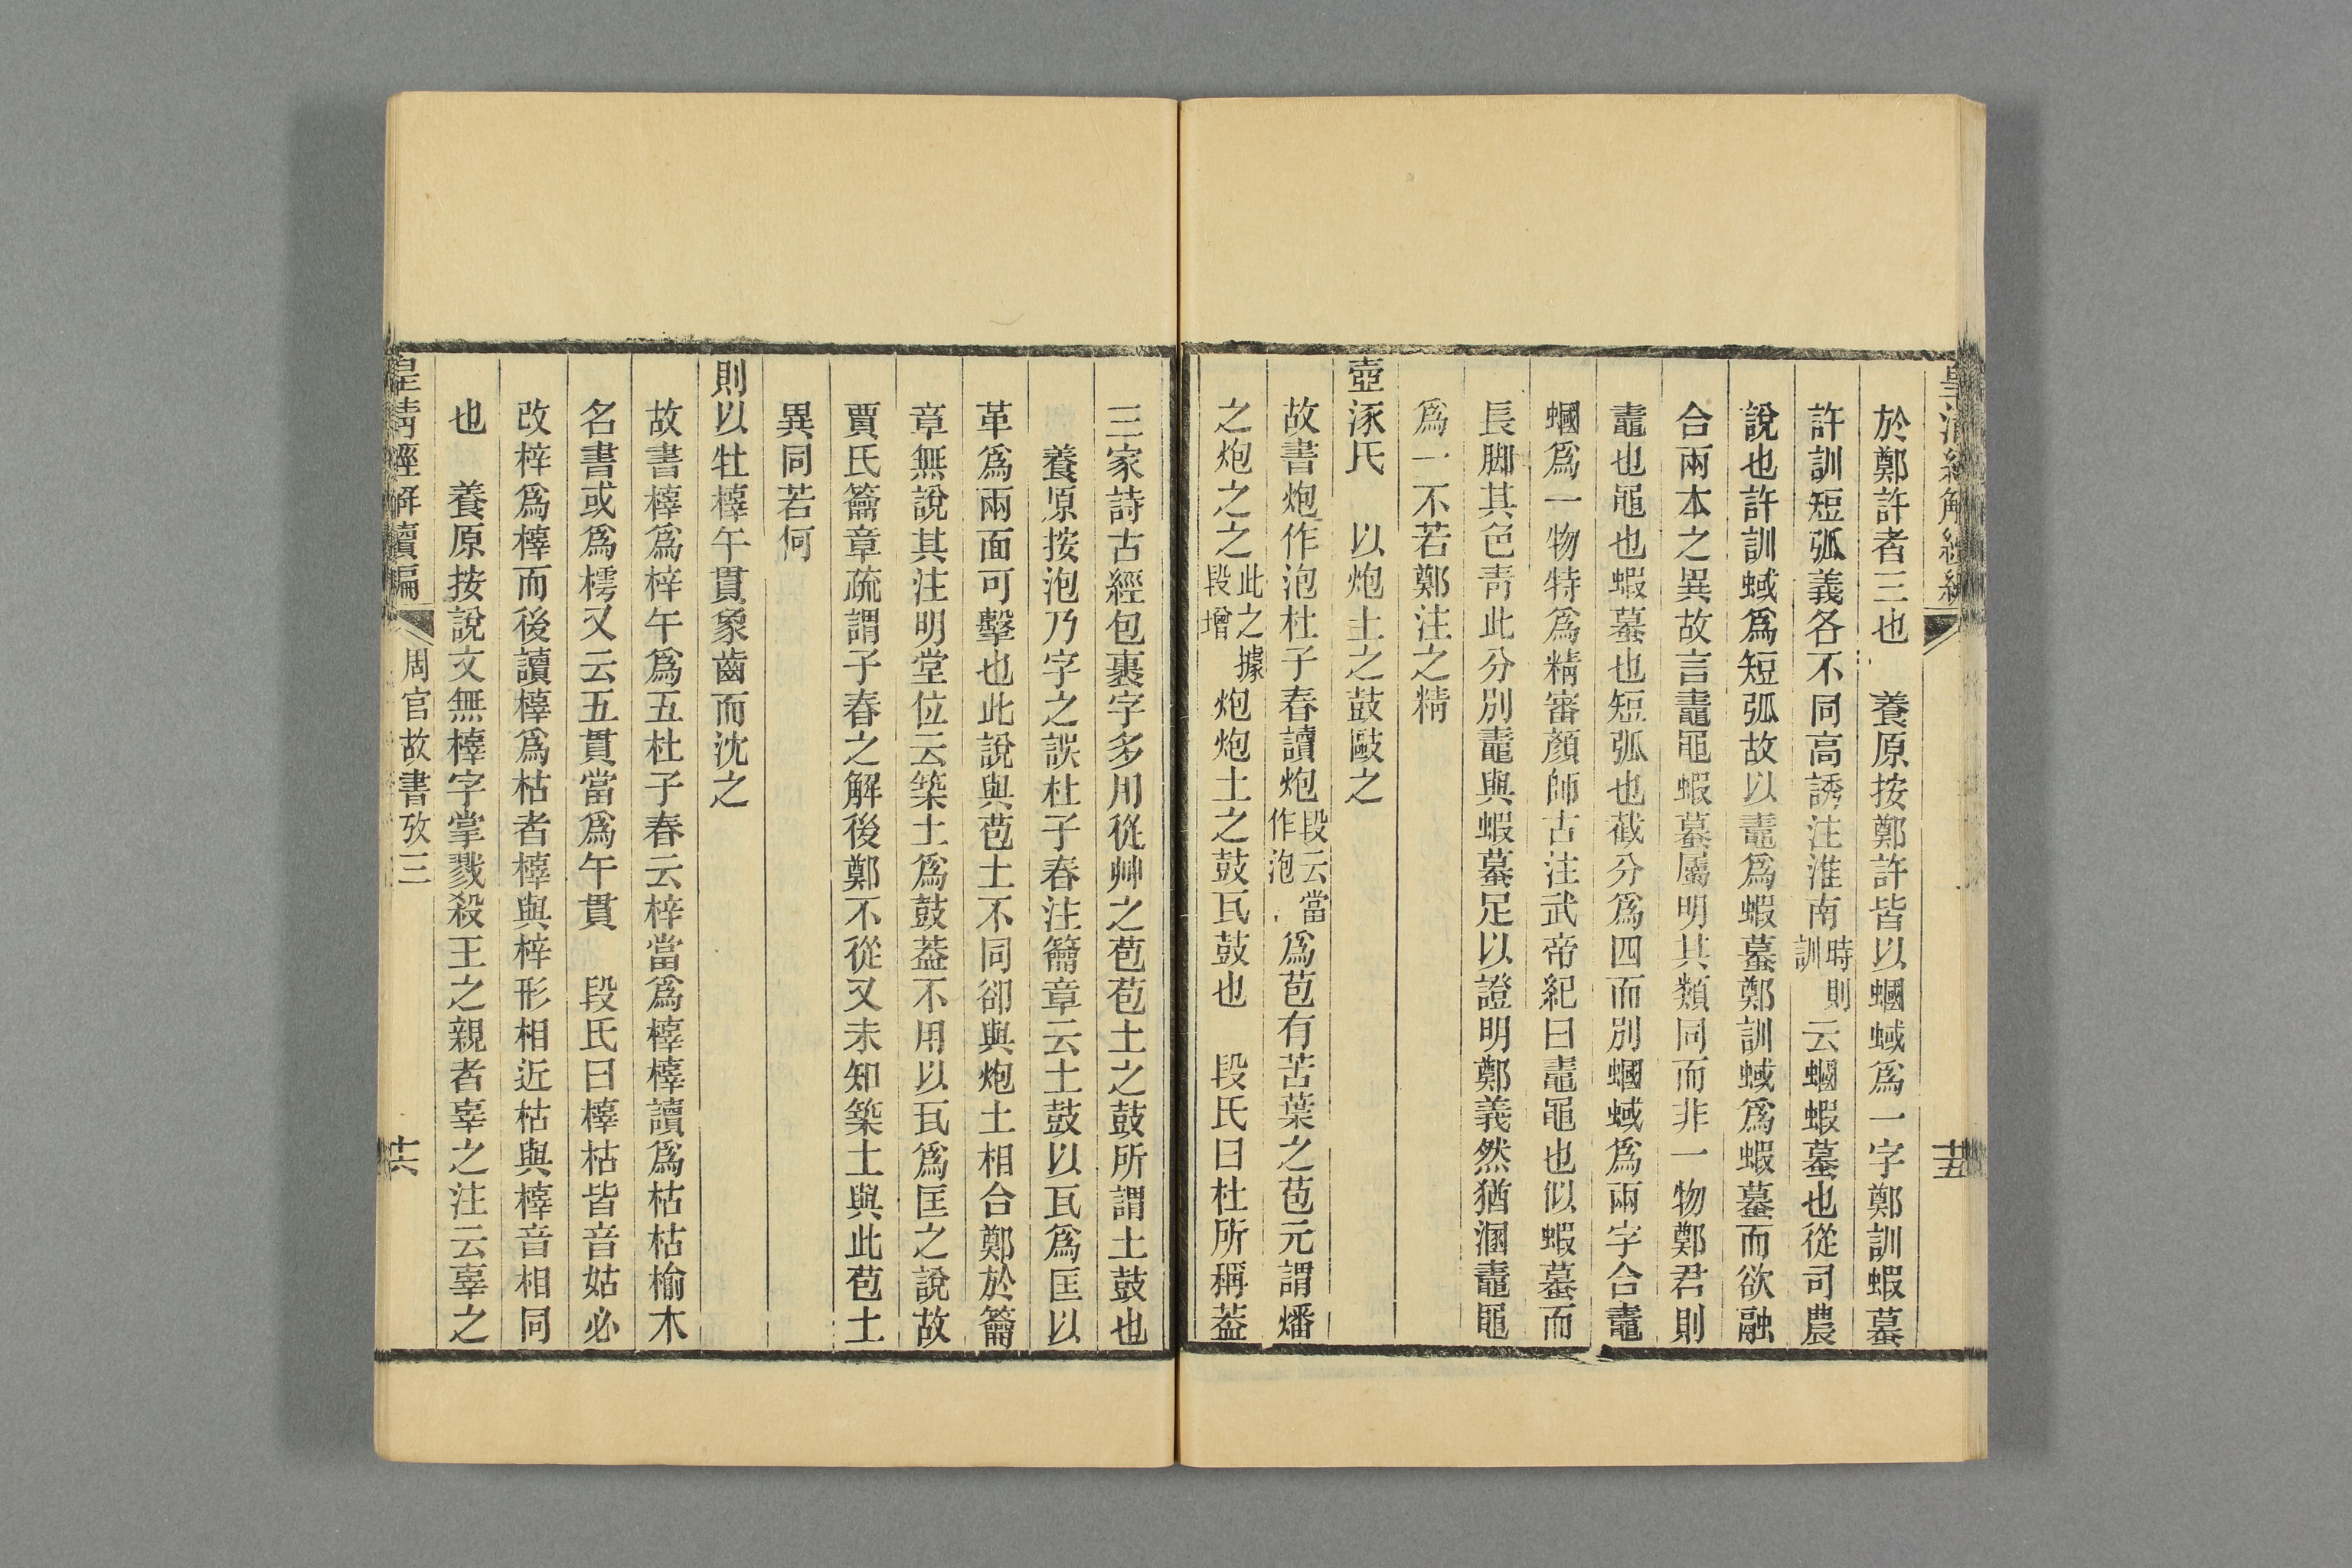 皇清經解續編
十五
於鄭許者三也　養原按鄭許皆以蟈蜮爲一字鄭訓蝦蟇
許訓短弧義各不同高誘注淮南時則訓云蟈蝦蟇也從司農
說也許訓蜮爲短弧故以鼃爲蝦蟇鄭訓蜮爲蝦蟇而欲融
合兩本之異故言鼃黽蝦蟇屬明其類同而非一物鄭君則
鼃也黽也蝦蟇也短弧也截分爲四而別蟈蜮爲兩字合鼃
蟈爲一物特爲精審顏師古注武帝紀曰鼃黽也似蝦蟇而
長脚其色靑此分別鼃與蝦蟇足以證明鄭義然猶溷鼃黽
爲一不若鄭注之精
壺涿氏　以炮土之鼓敺之
故書炮作泡杜子春讀炮段云當作泡爲苞有苦葉之苞元謂燔
之炮之之此之據段增炮炮土之鼓瓦鼓也　段氏曰杜所稱葢
三家詩古經包裹字多用從艸之苞苞土之鼓所謂土鼓也
養原按泡乃字之誤杜子春注籥章云土鼓以瓦爲匡以
革爲兩面可擊也此說與苞土不同卻與炮土相合鄭於籥
章無說其注明堂位云築土爲鼓葢不用以瓦爲匡之說故
賈氏籥章疏謂子春之解後鄭不從又未知築土與此苞土
異同若何
則以牡橭午貫象齒而沈之
故書橭爲梓午爲五杜子春云梓當爲橭橭讀爲枯枯榆木
名書或爲樗又云五貫當爲午貫　段氏曰橭枯皆音姑必
改梓爲橭而後讀橭爲枯者橭與梓形相近枯與橭音相同
也　養原按說文無橭字掌戮殺王之親者辜之注云辜之
皇清經解續編
周官故書攷三
十六